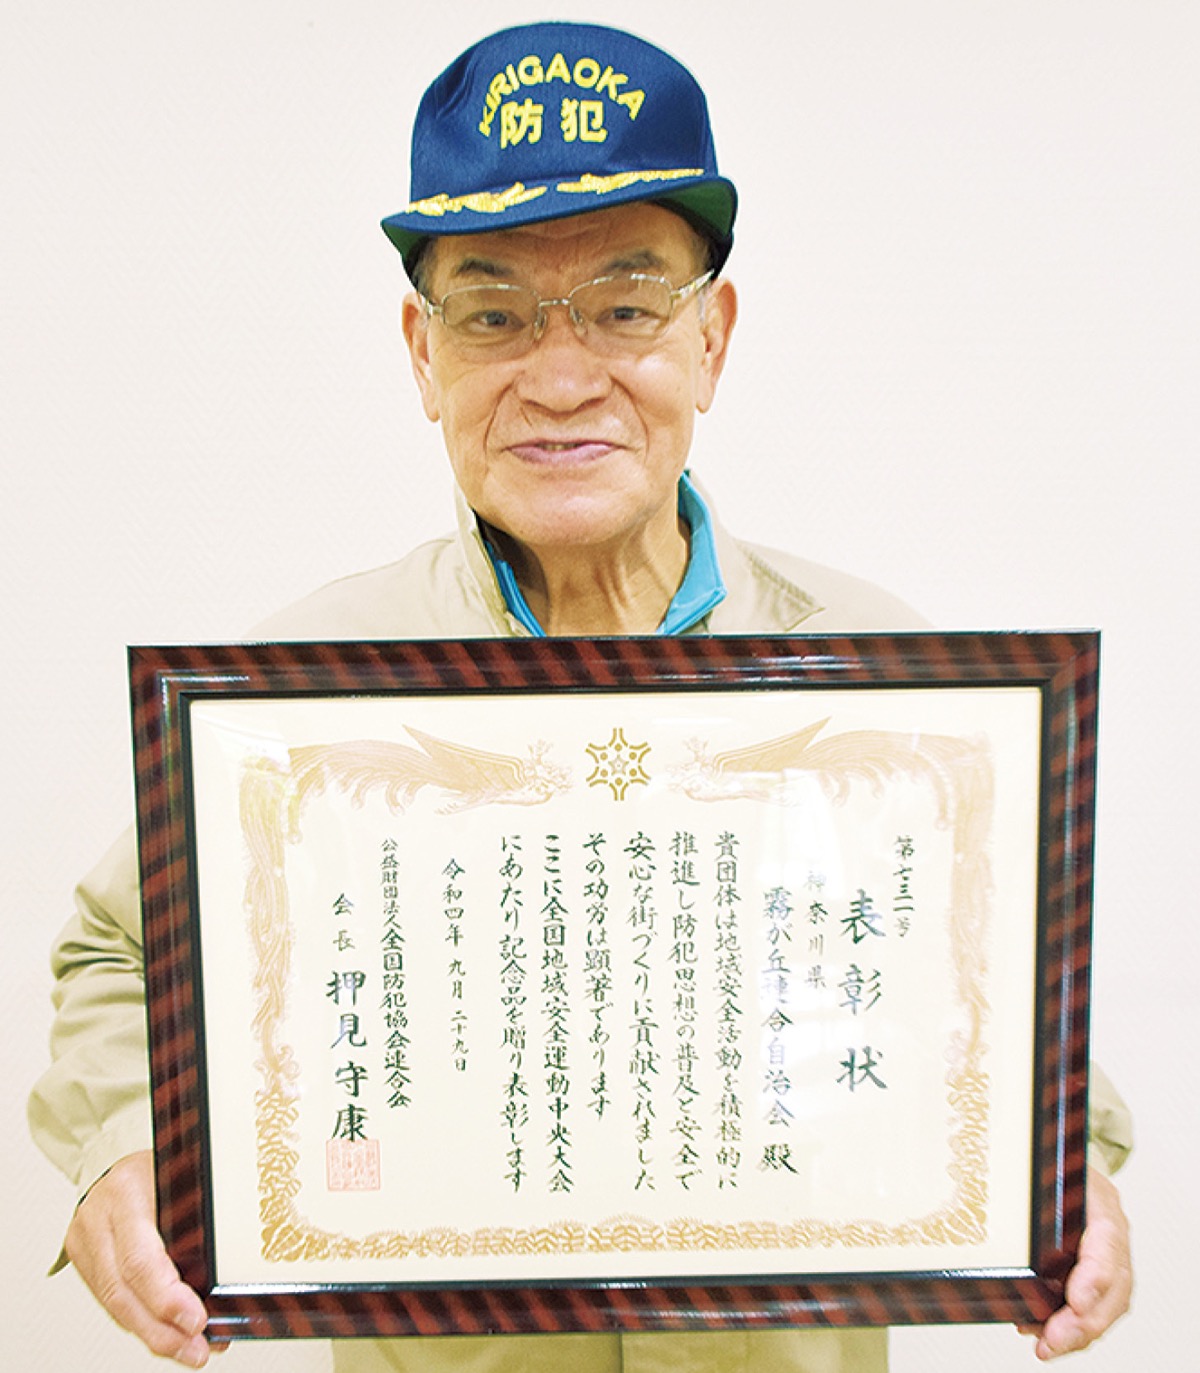 KIRIGAOKA
防犯
第七三二号
表彰状
神奈川県
霧が丘連合自治会 殿
貴団体は地域安全活動を積極的に
推進し防犯思想の普及と安全で
安心な街づくりに貢献されました
その功労は顕著であります
ここに全国地域安全運動中央大会
にあたり記念品を贈り表彰します
令和四年 九月 二十九日
公益財団法人全国防犯協会連合会
会長 押見守康